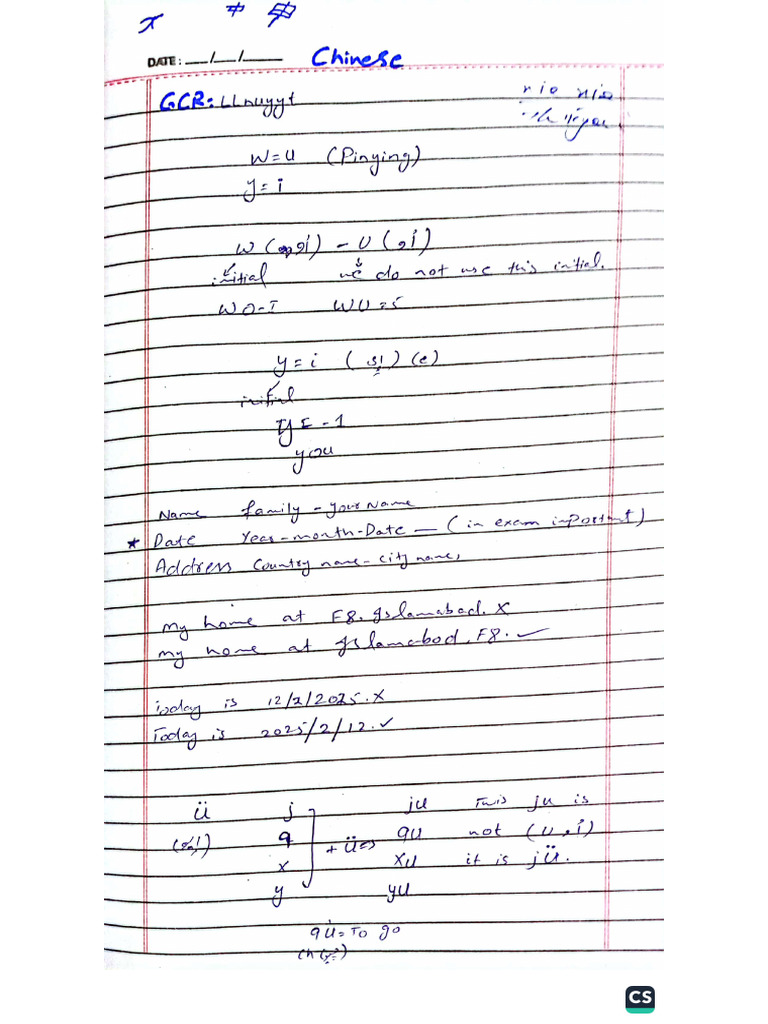 DATE: __/__/____ Chinese
GCR: LLnuyyt
W=U (Pinying)
y=i
W ( ) - U (او)
initial we do not use this initial.
WO-I WU=5
y=i ( ) (e)
initial
YE-1
you
Name family-your Name
* Date Year-month-Date — (in exam inportant)
Address Country name-city name,
my home at F8. Islamabad. X
my home at Islamabad, F8. ✓
Today is 12/2/2025. X
Today is 2025/2/12. ✓
ü j ju This ju is
q + ü => qu not (u, او)
x xu it is jü.
y yu
qù = To go